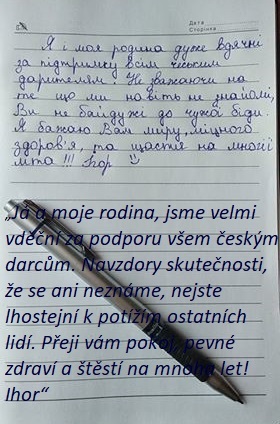 Дата
Сторінка
Я і моя родина дуже вдячні
за підтримку всім чеським
дарителям. Не зважаючи на
те що ми навіть не знайомі,
Ви не байдужі до чужої біди.
Я бажаю Вам миру, міцного
здоров'я, та щастя на многії
літа!!! Ігор
„Já a moje rodina, jsme velmi
vděční za podporu všem českým
dárcům. Navzdory skutečnosti,
že se ani neznáme, nejste
lhostejní k potížím ostatních
lidí. Přeji vám pokoj, pevné
zdraví a štěstí na mnoha let!
Ihor“